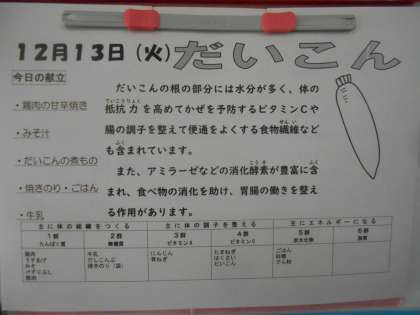 12月13日（火）だいこん
今日の献立
・鶏肉の甘辛焼き
・みそ汁
・だいこんの煮もの
・焼きのり・ごはん
・牛乳
だいこんの根の部分には水分が多く、体の
抵抗力を高めてかぜを予防するビタミンCや
腸の調子を整えて便通をよくする食物繊維など
も含まれています。
また、アミラーゼなどの消化酵素が豊富に含
まれ、食べ物の消化を助け、胃腸の働きを整え
る作用があります。
主に体の組織をつくる 主に体の調子を整える 主にエネルギーになる
1群 2群 3群 4群 5群 6群
たんぱく質 無機質 ビタミンA ビタミンC 炭水化物 脂質
鶏肉 牛乳 にんじん たまねぎ ごはん
うすあげ だしこんぶ 青ねぎ はくさい 砂糖
みそ 焼きのり（袋） だいこん でん粉
けずりぶし